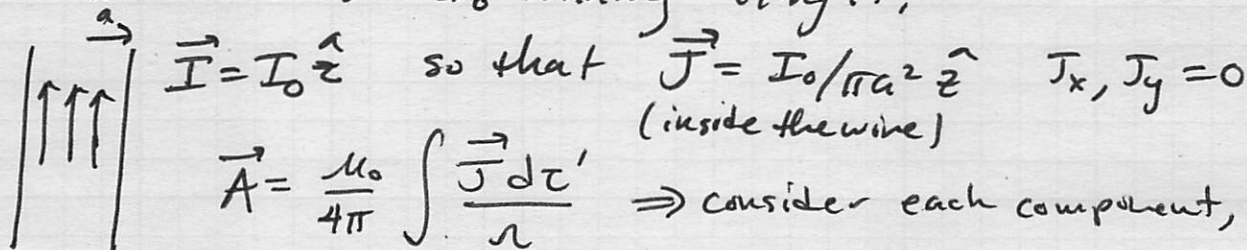 a
I⃗ = I₀ ẑ so that J⃗ = I₀/πa² ẑ Jx, Jy = 0
(inside the wire)
A⃗ = μ₀/4π ∫ J⃗ dτ'/r ⇒ consider each component,